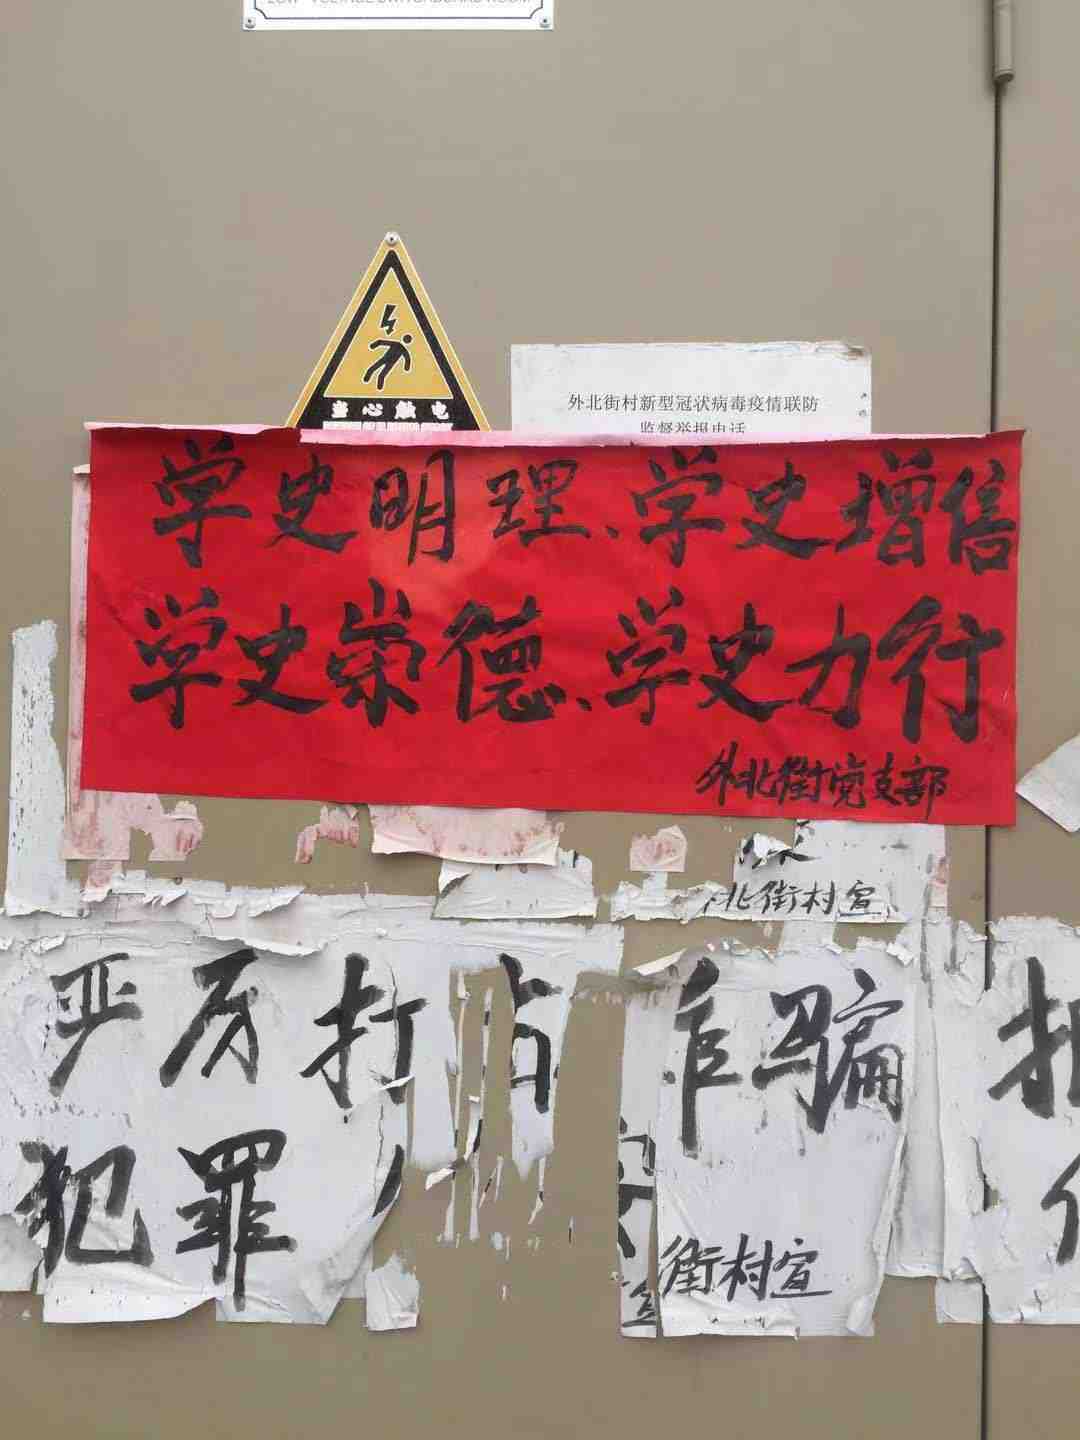 LOW-VOLTAGE SWITCHBOARD ROOM
当心触电
外北街村新型冠状病毒疫情联防
监督举报电话
学史明理、学史增信
学史崇德、学史力行
外北街党支部
北街村宣
严厉打
诈骗
犯罪
街村宣